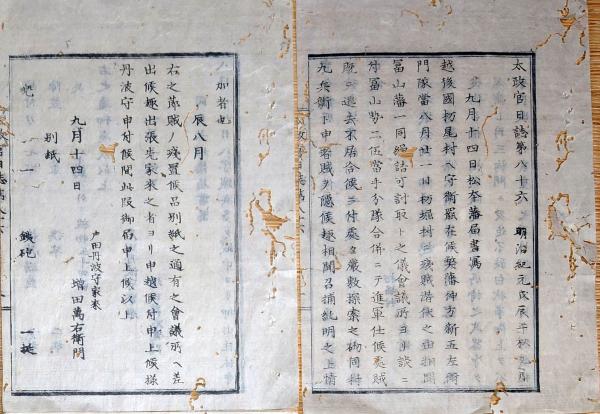 太政官日誌第八十六 明治紀元戊辰
九月十四日松本藩届書寫
越後國栃尾村ヘ守衛罷在候弊藩伸方新五左衛
門隊當八月廿一日栃堀村ニ残賊潜伏之由相聞
冨山藩一同
討取トノ儀會議所ヨリ談ニ
付冨山勢二伍當手分隊合併ニテ進軍仕候處賊
既ニ退去不居合候ニ付處々嚴敷探索之砌同村
九兵衛ト申者賊ヲ隠候趣相聞召捕糺明之上情
加者也
辰八月
右之落賊ノ残置候品別紙之通有之會議所ヘ差
出候趣出張先家来之者ヨリ申越候付申上候様
丹波守申付候間此段御届申上候以上
戸田丹波守家来
九月十四日 増田萬右衛門
別紙
一 鐵砲 一挺